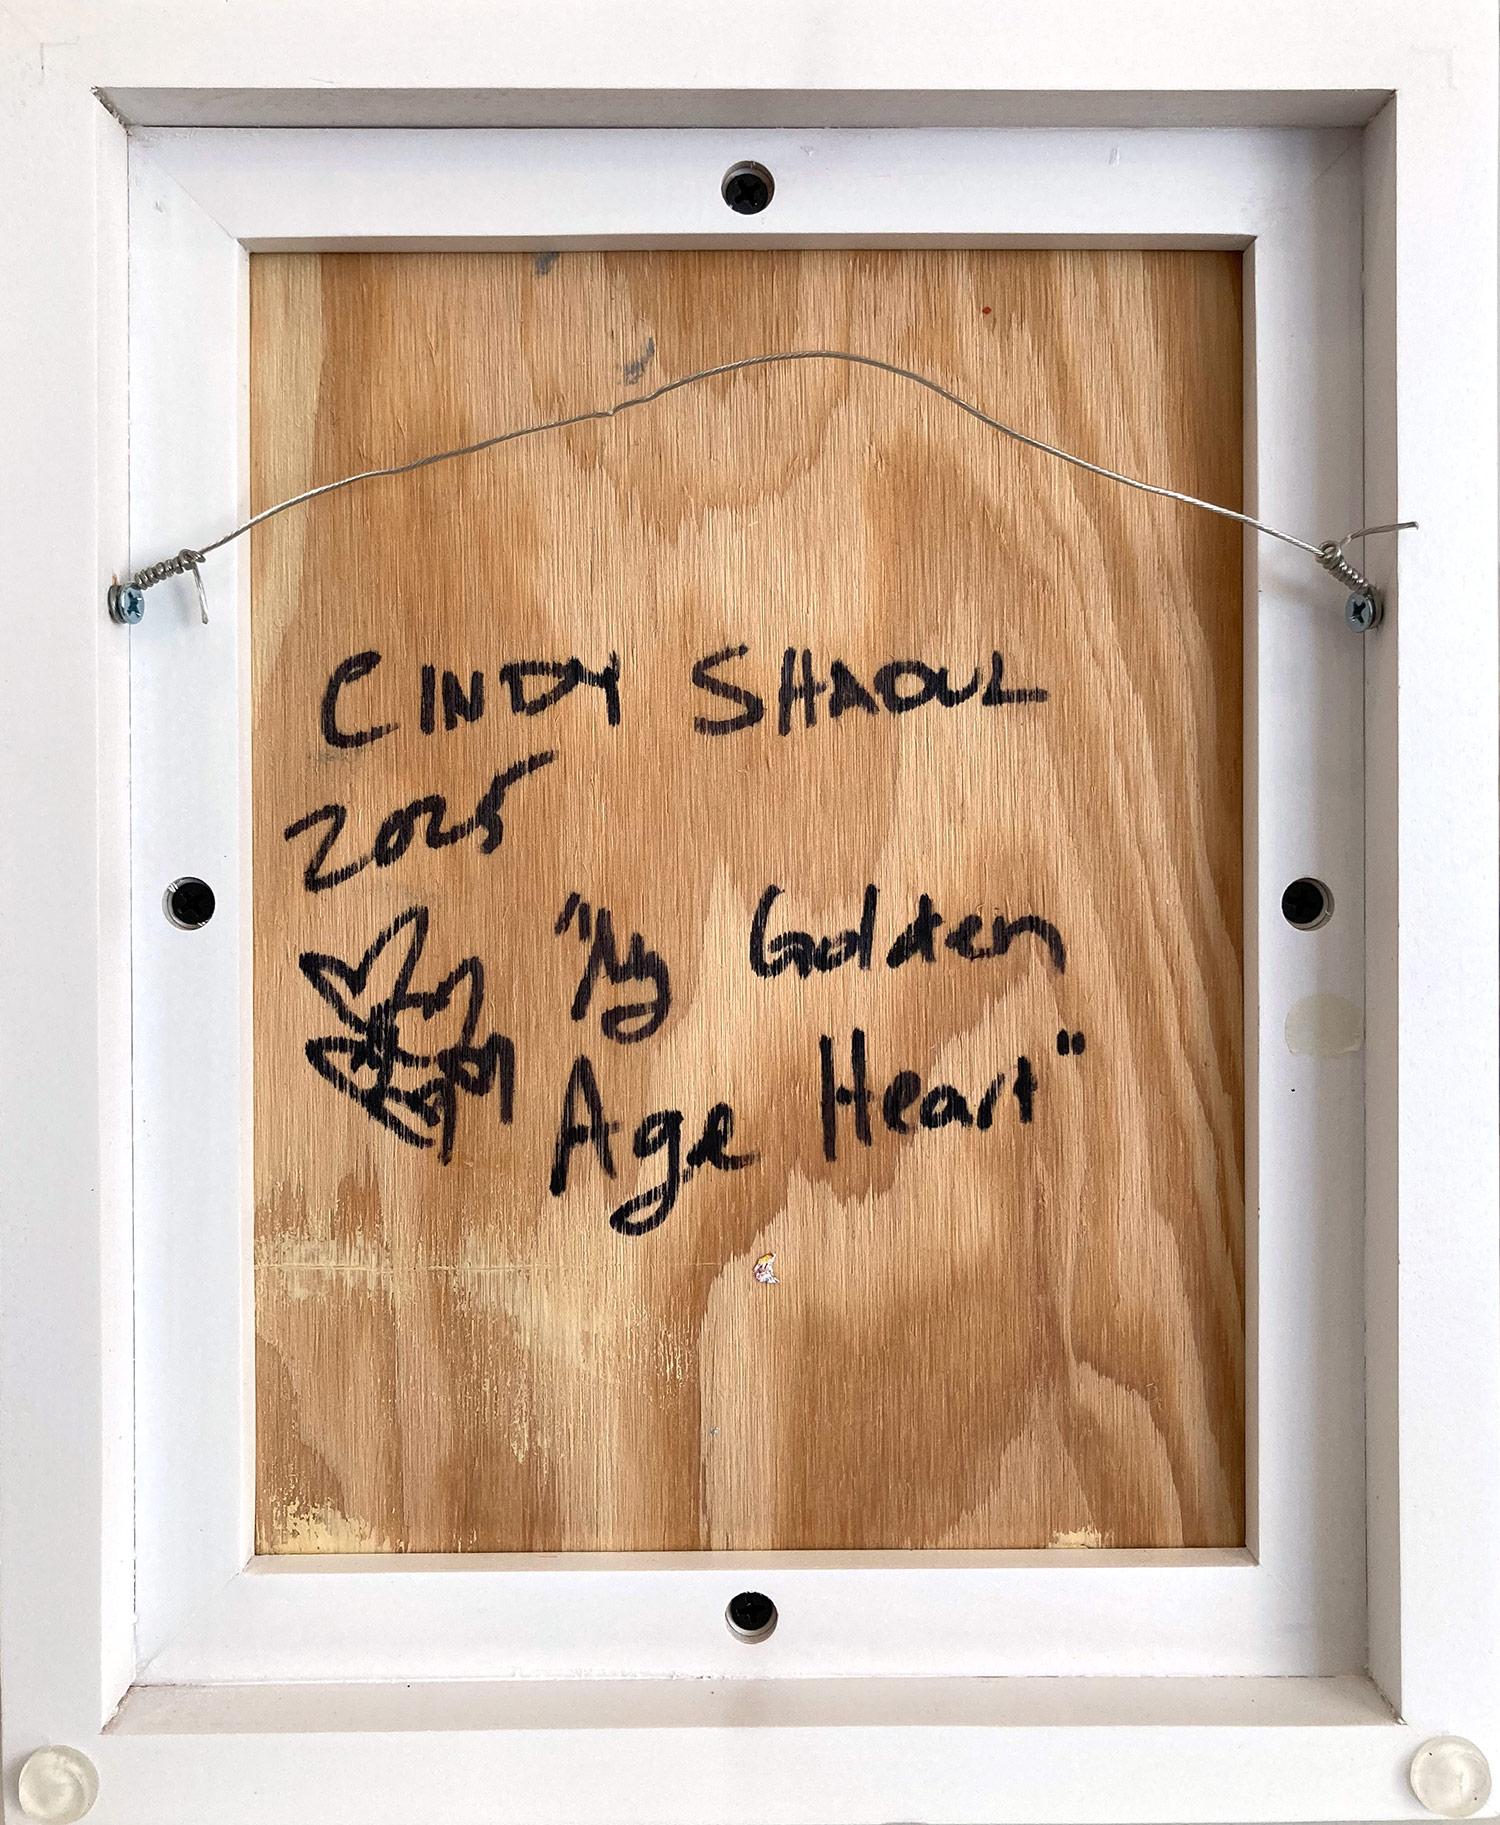 CINDY SHAOUL
2025
"My Golden
Age Heart"